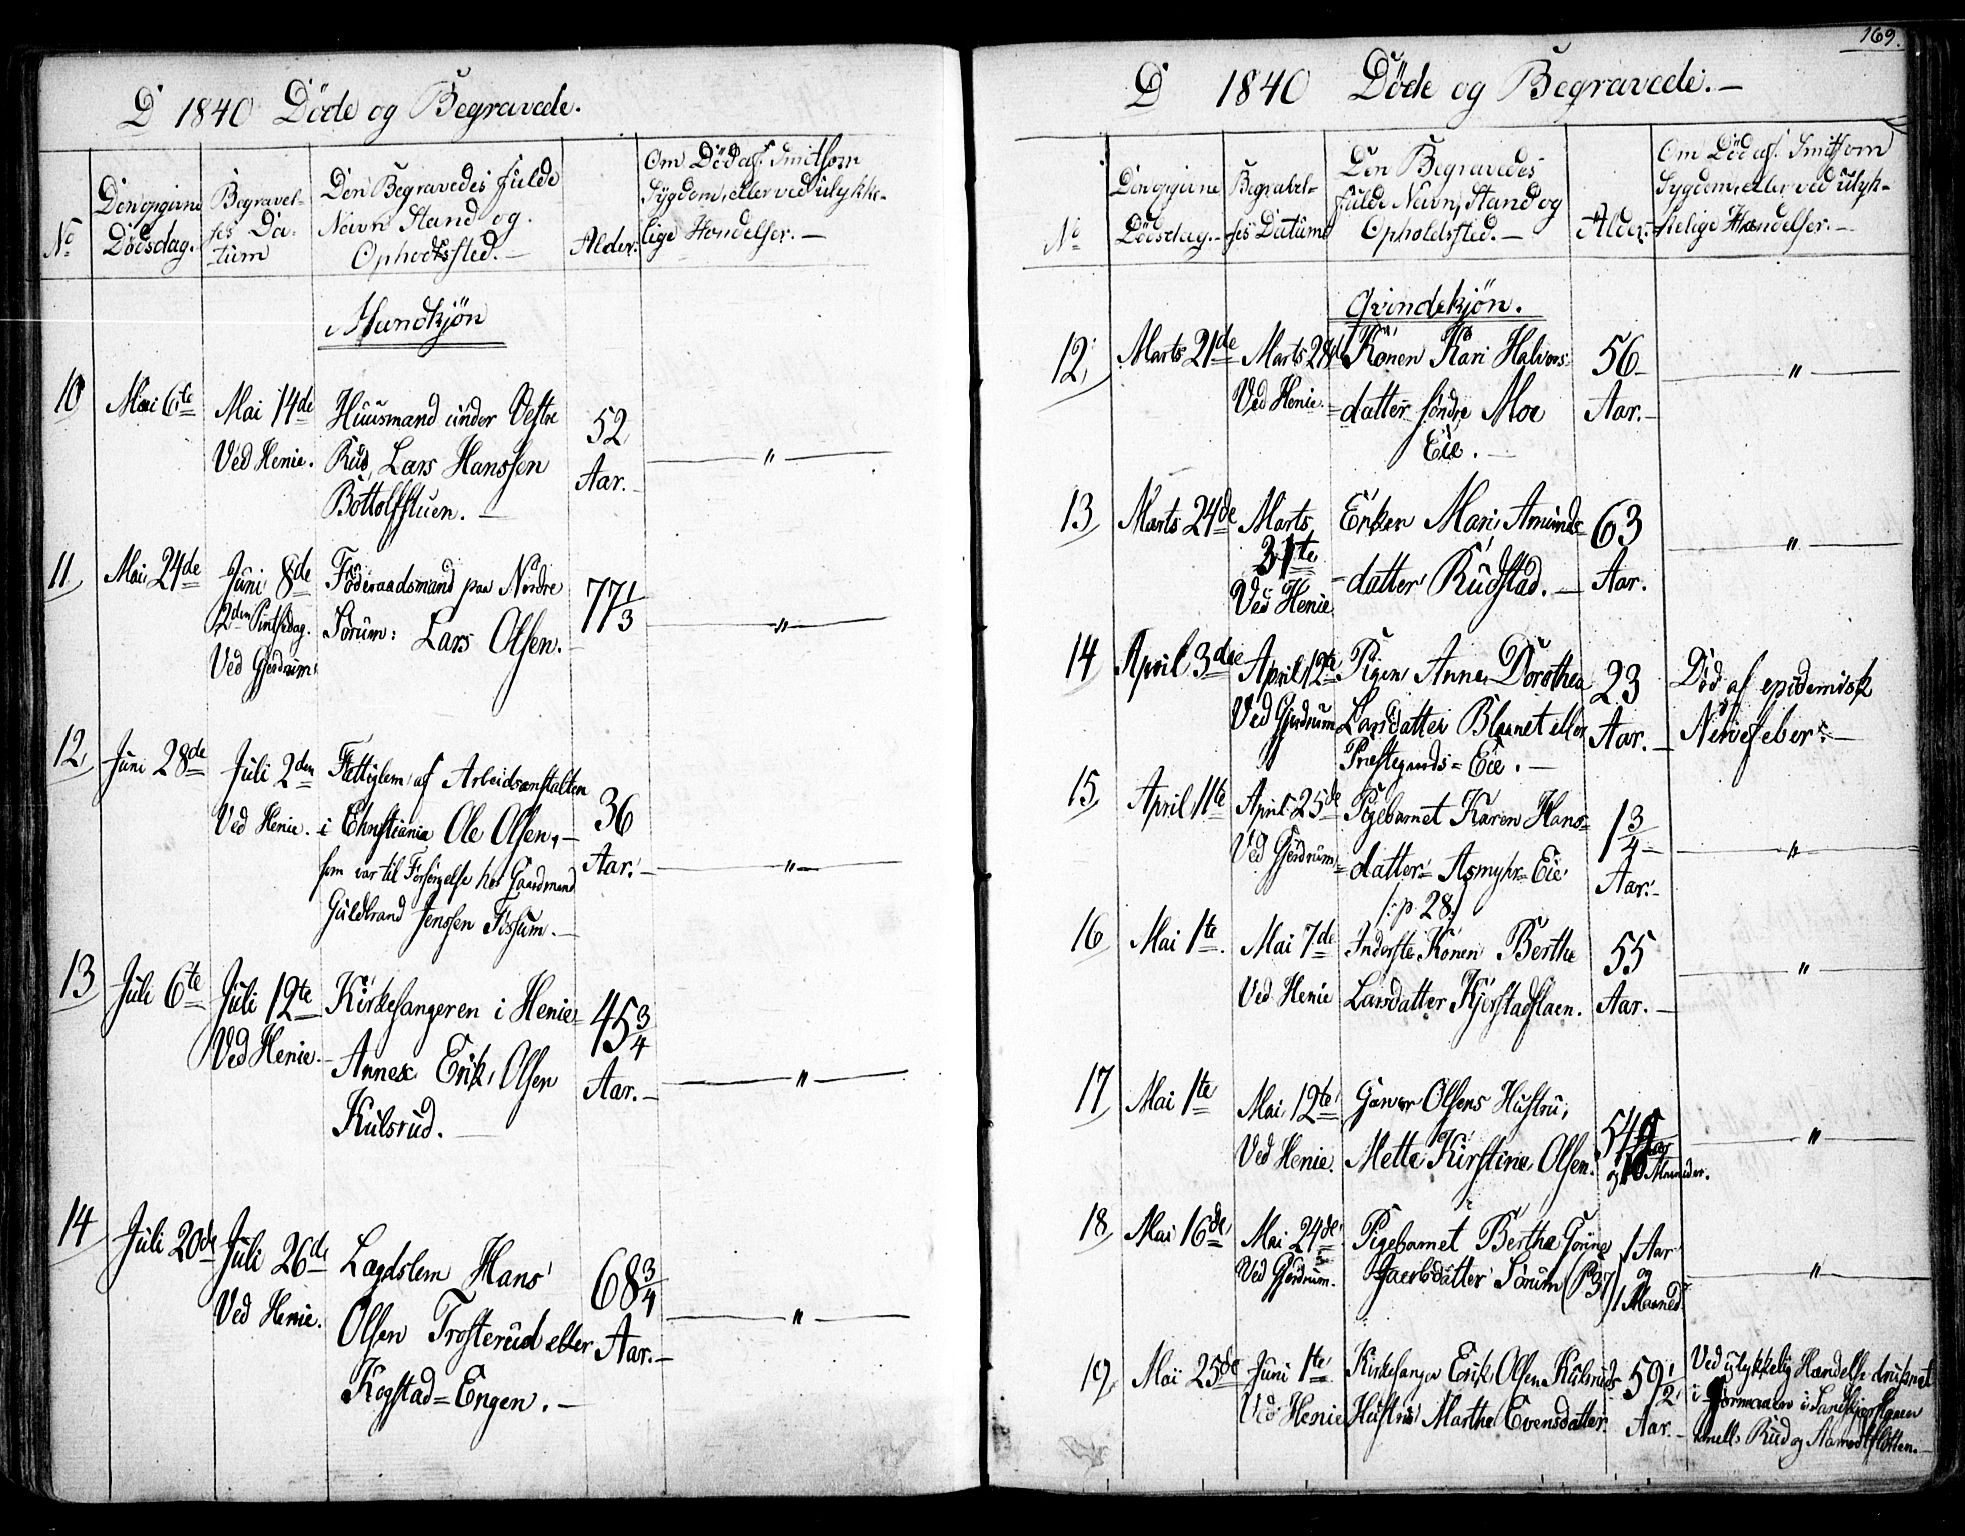 D 1840 Döde og Begravede.
No
Den opgivne
Dödsdag.
Begravel-
ses Da-
tum
Den Begravedes fulde
Navn Stand og
Opholdssted. —
Alder.
Om Död af Smitsom
Sygdom, eller ved ulykke-
lige Hændelser. —
Mandkjön
10 Mai 6te Mai 14de Huusmand under Vestre
Ved Henie. Rud, Lars Hanssen 52
Bottolfstuen. — Aar. — "
11 Mai 24de Juni 8de Föderaadsmand paa Nordre
2den Pintsedag. Sörum: Lars Olsen. 77 1/3 — " —
Ved Gjerdrum
12 Juni 28de Juli 2den Fattiglem af Arbeidsanstalten
Ved Henie. i Christiania Ole Olsen, — 36
som var til Forsörgelse hos Gaardmand Aar. — " —
Guldbrand Jenssen Fossum. —
13 Juli 6te Juli 12te Kirkesangeren i Henie- 45 3/4
Ved Henie. Annex Erik Olsen Aar. — " —
Kulsrud. —
14 Juli 20de Juli 26de Lægdslem Hans 68 3/4
Ved Henie. Olsen Trosterud eller Aar. — " —
Kogstad=Engen. —
169.
D 1840 Döde og Begravede. —
No
Den opgivne
Dödsdag. —
Begravel-
ses Datum
Den Begravedes
fulde Navn, Stand og
Opholdsted. —
Alder.
Om Död af Smitsom
Sygdom, eller ved ulyk-
kelige Hændelser. —
Qvindekjön.
12 Marts 21de Marts 28de Konen Kari Halvors- 56
Ved Henie. datter söndre Moe Aar. — " —
Eie. —
13 Marts 24de Marts Enken Mari Amunds- 63
31te
Ved Henie datter Rudstad. — Aar. — " —
14 April 3die April 12te Pigen Anne Dorothea 23 Död af epidemisk
Ved Gjerdrum Larsdatter eller Aar. — Nervefeber. —
Præstegaards= Eie. —
15 April 11te April 25de Pigebarnet Karen Hans- 1 3/4
Ved Gjerdrum datter= Asmyhr= Eie Aar. — " —
/: p. 28 :/
16 Mai 1te. Mai 7de Inderste Konen Berthe 55
Ved Henie Larsdatter Kjerstadflaen. Aar. — " —
17 Mai 1te Mai 12te Olsens Hustru,
Ved Henie. Mette Kirstine Olsen. 54 Aar
og 10 Maaneder. — " —
18 Mai 16de Mai 24de Pigebarnet Berthe 1 Aar
Ved Gjerdrum. Sörum (P 37) og
1 Maaned. — " —
19 Mai 25de Juni 1te Kirkesanger Erik Olsen Kulsruds 59 1/2 Ved ulykkelig Hændelse druknet
Ved Henie Hustru Marthe Evensdatter. Aar. — i
Rud og